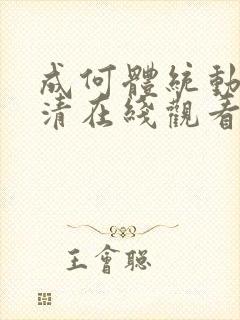 成何體統動
清在綫觀看
王會聰